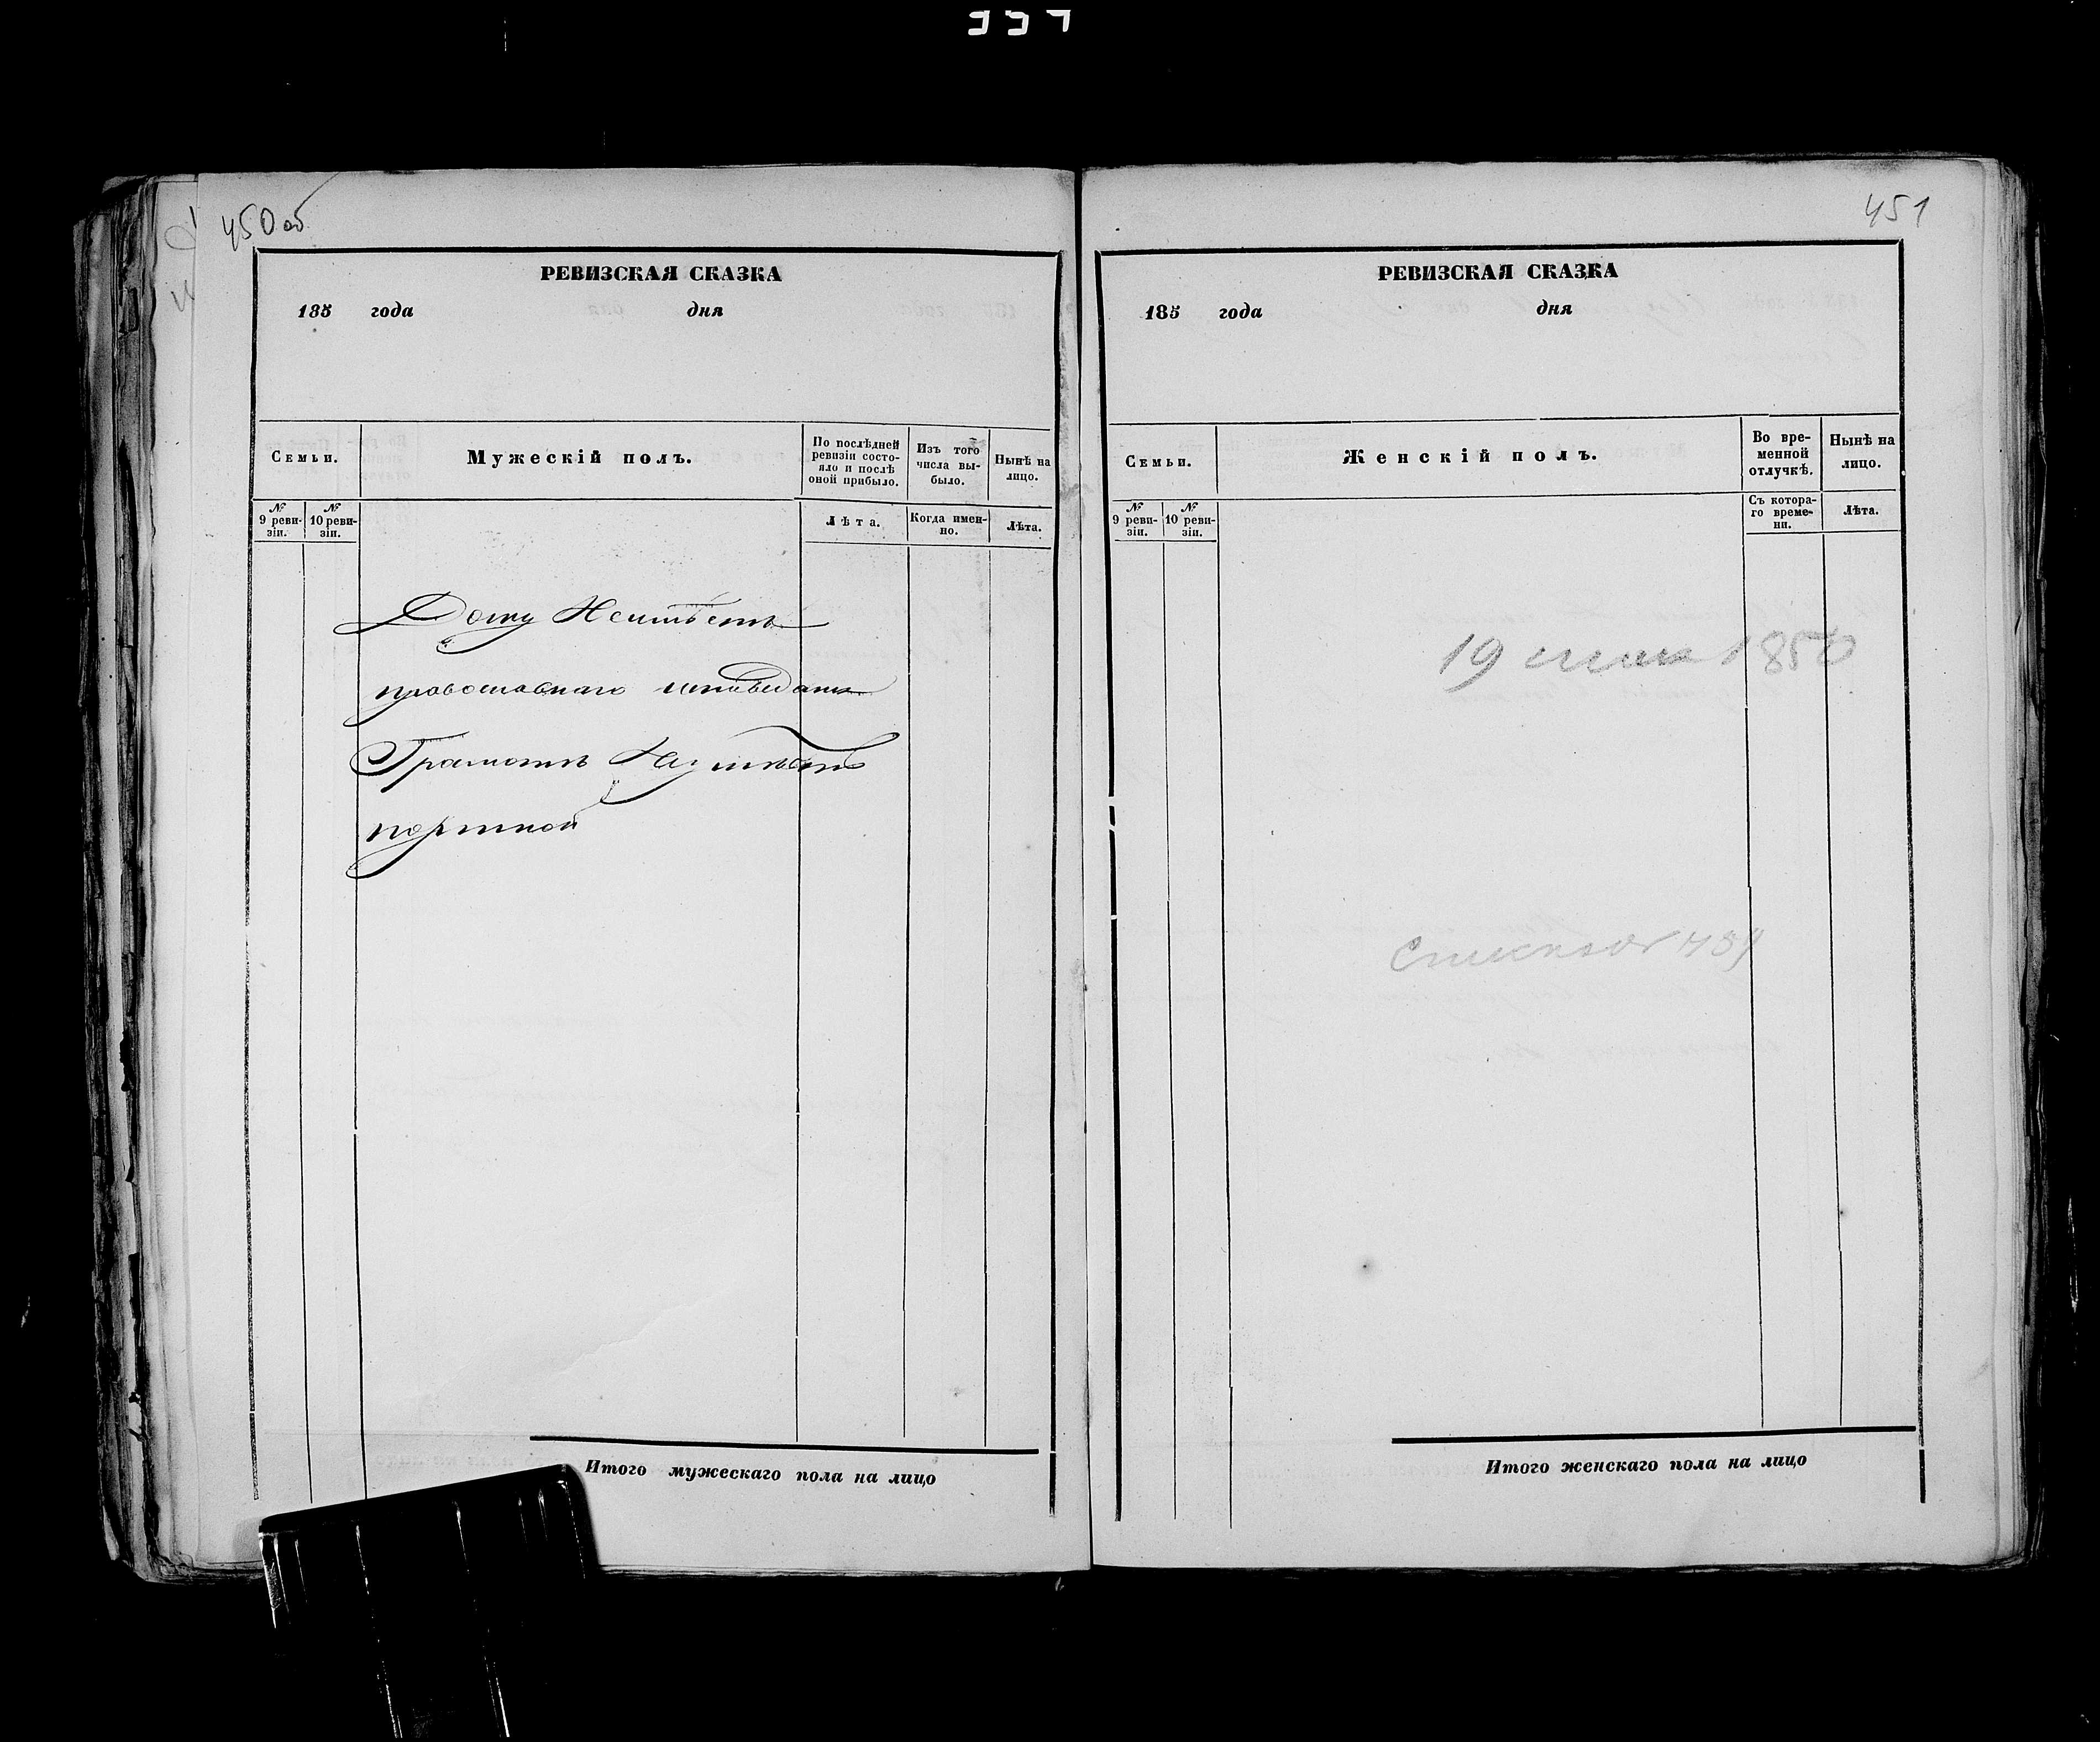 450 об
РЕВИЗСКАЯ СКАЗКА
185 года дня
Семьи.
Мужескій полъ.
По послѣдней ревизіи состояло и послѣ оной прибыло.
Изъ того числа выбыло.
Нынѣ на лицо.
№ 9 ревизіи.
№ 10 ревизіи.
Лѣта.
Когда именно.
Лѣта.
Дому Неимѣетъ
православнаго исповеданія
Грамоти Неумѣетъ
портной
Итого мужескаго пола на лицо
451
РЕВИЗСКАЯ СКАЗКА
185 года дня
Семьи.
Женскій полъ.
Во временной отлучкѣ.
Нынѣ на лицо.
№ 9 ревизіи.
№ 10 ревизіи.
Съ котораго времени.
Лѣта.
19 1850
Итого женскаго пола на лицо